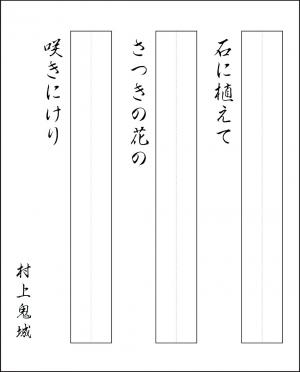 石に植えて
さつきの花の
咲きにけり
村上鬼城